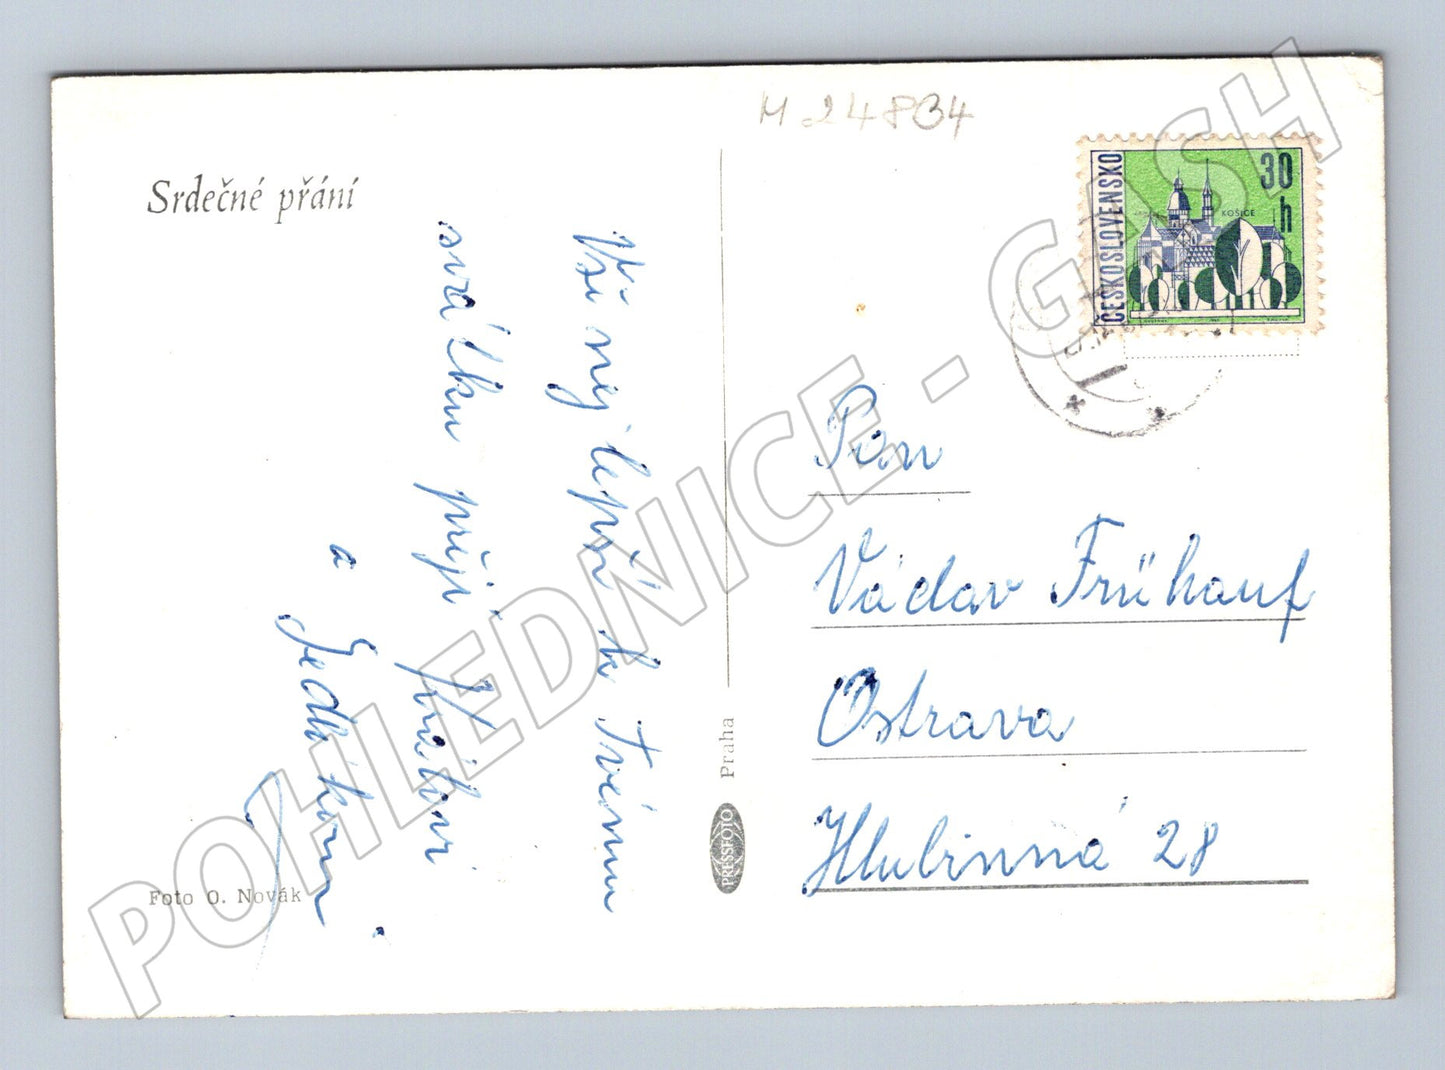 M 24834
Srdečné přání
ČESKOSLOVENSKO
30
h
KOŠICE
Vše nej lepší k Tvému
svátku přejí
a
Foto O. Novák
PRESSFOTO
Praha
Pan
Václav Frühauf
Ostrava
Hlubinná 28
POHLEDNICE - GASH